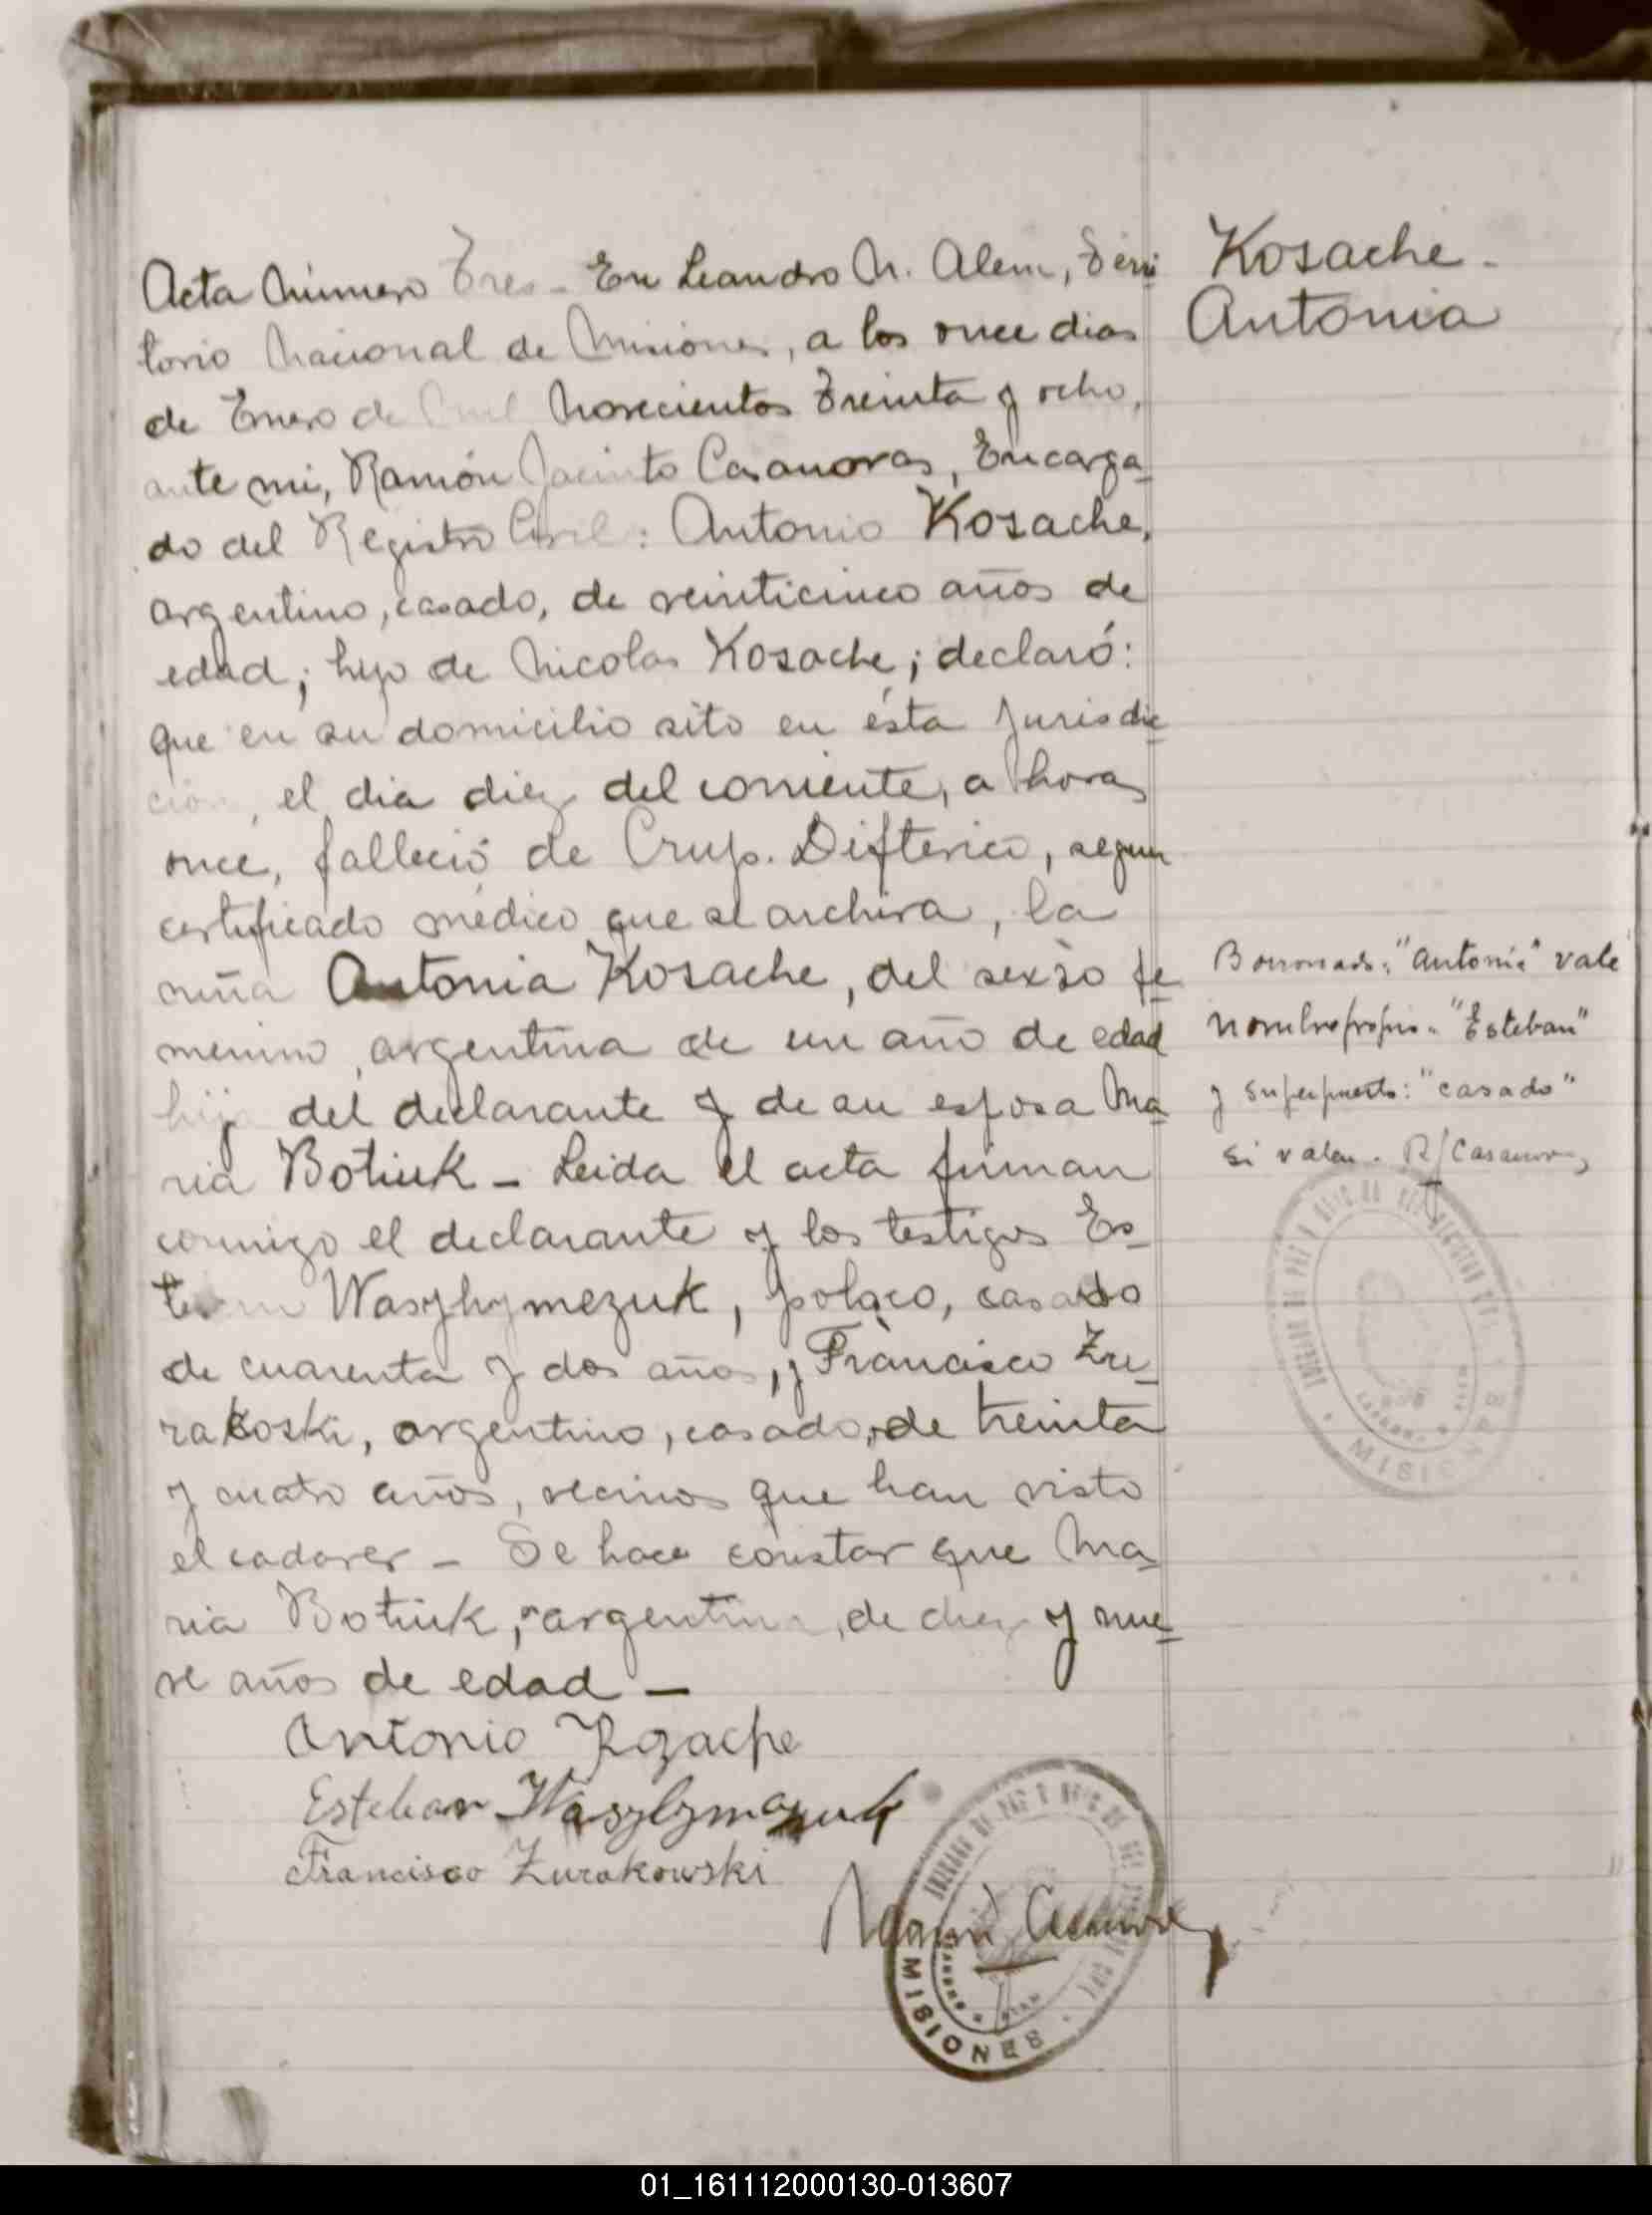 Kosache -
Antonia
Acta Número Tres - En Leandro N. Alem, Terri
torio Nacional de Misiones, a los once dias
de Enero de mil Novecientos Treinta y ocho,
ante mi, Ramón Jacinto Casanovas, Encarga
do del Registro Civil: Antonio Kosache,
argentino, casado, de veinticinco años de
edad; hijo de Nicolas Kosache; declaró:
que en su domicilio sito en ésta Jurisdic
ción, el dia diez del corriente, a horas
once, falleció de Crup. Difterico, segun
certificado médico que se archiva, la
niña Antonia Kosache, del sexso fe
menino, argentina de un año de edad
hija del declarante y de su esposa Ma
ria Botiuk - Leida el acta firman
conmigo el declarante y los testigos Es
teban Waszhymezuk, polaco, casado
de cuarenta y dos años, y Francisco Zu
rakoski, argentino, casado, de treinta
y cuatro años, vecinos que han visto
el cadaver - Se hace constar que Ma
ria Botiuk, argentina, de diez y nue
ve años de edad -
Borroneado: "Antonia" vale
Nombre propio "Esteban"
y superpuesto: "casado"
si valen. R/Casanovas
MISIONES
Antonio Kozache
Esteban Wasylymczuk
Francisco Zurakowski
Ramón Casanovas
MISIONES
01_161112000130-013607